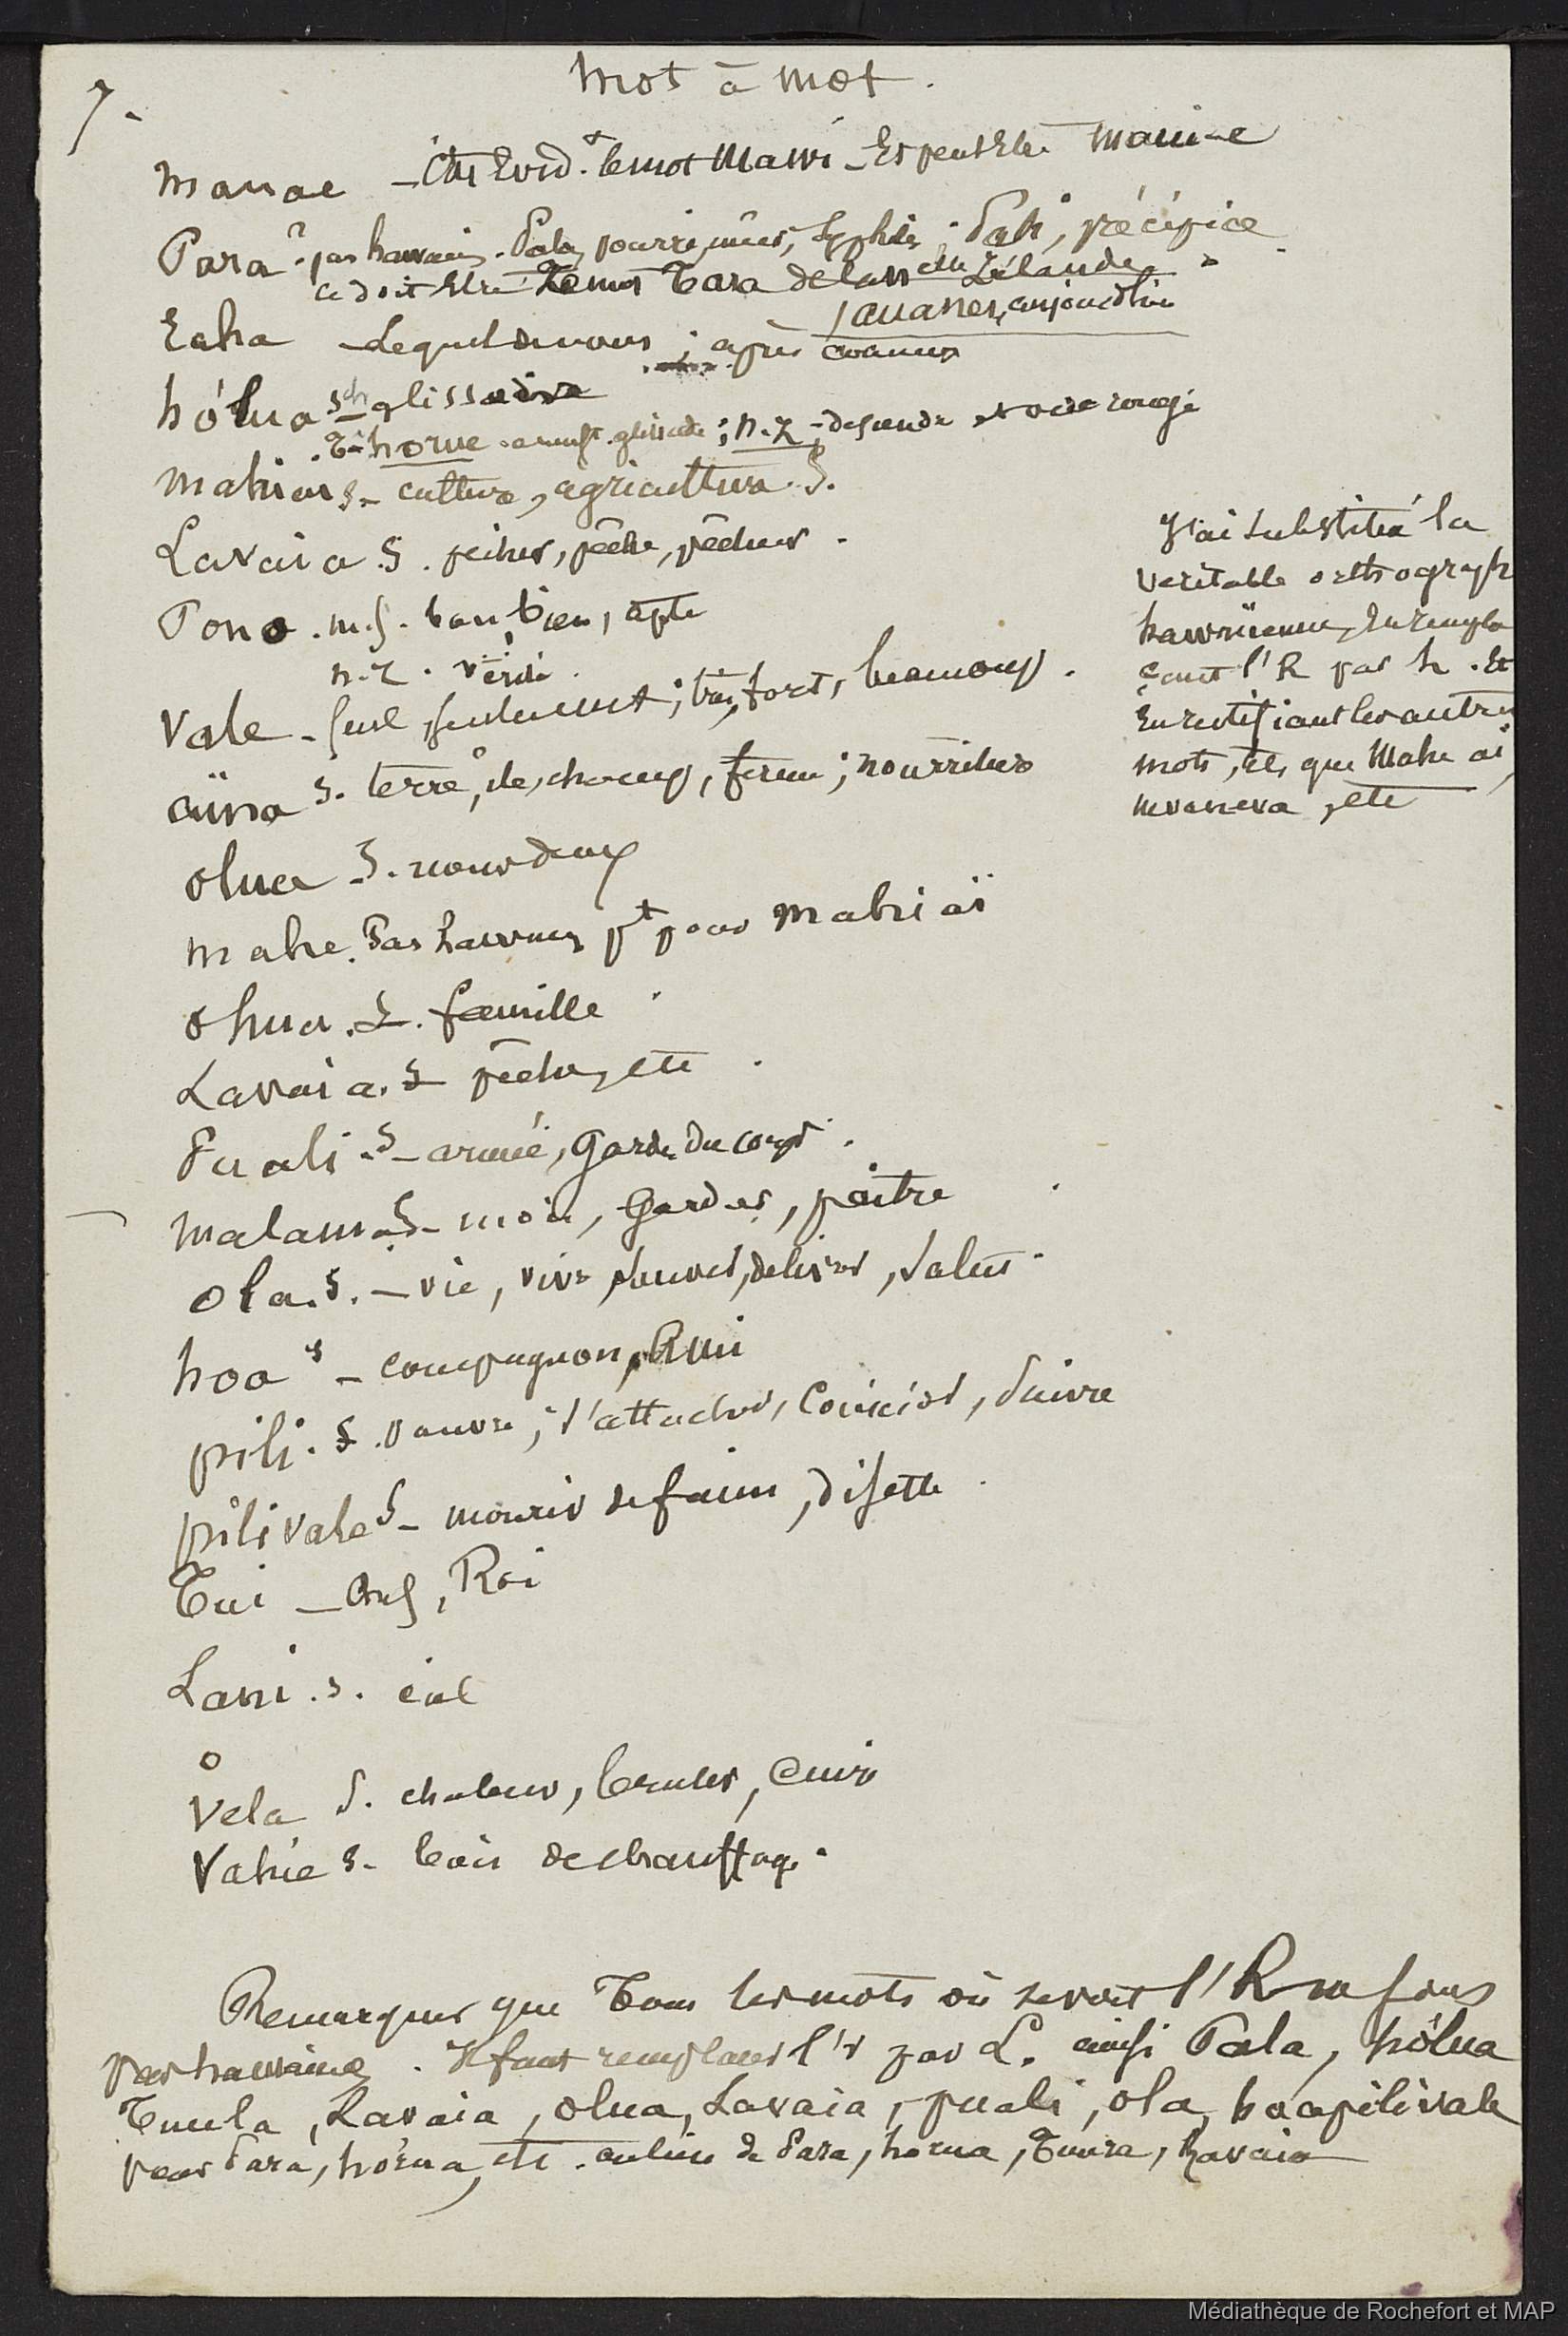 7.
Mot à mot.
Manae - C'est Evid.t le mot Mawi - Et peut Etre Maui-e
Para? pas hawaiien. Pala, pourri, mûr, Syphilis; Pali, précipice
ce doit Etre le mot Tara de la nelle Zélande.
Eaha - Lequel de nous; après
hólua S glissoire
T. horue amusft. glissade; N.Z; descendre et ocre rouge
Mahiai S - culture, agriculture. S.
Lavaia. S. pêcher, pêche, pêcheur.
Pono. m.S. bon, bien, apte
N.Z. Verdi.
Vale - seul, seulement; très, fort, beaucoup.
äina S. terre, île, champ, ferme; nourriture
olua S. vous deux
Mahe. Pas hawaiien pt pour Mahiaï
Ohua. S. famille.
Lavaia. S pêcher, etc.
Puali. S - armée, Garde du corps.
Malama S - mois, Garder, paître
Ola. S. - vie, vivre, sauver, délivrer, salut.
hoa S - compagnon, Ami
pili. S. pauvre; s'attacher, Coïncider, suivre
pilivale S - mourir de faim, disette.
Tui - chef, Roi
Lani. S. ciel
o
Vela S. chaleur, bruler, Cuire
Vahie S. bois de chauffage.
J'ai substitué la
veritable orthograph
hawaiienne, En rempla
çant l'R par L. Et
En rectifiant les autres
mots, tels que Mahe ai,
mvaneva, etc
Remarquer que Tous les mots où se voit l'R ne sont
pas hawaiiens. Il faut remplacer l'r par L. ainsi Pala, hólua
Tuula, Lavaia, olua, Lavaia, puali, ola, hoapilivale
pour Para, hórua, etc. au lieu de Para, horua, Tuura, Ravaia
Médiathèque de Rochefort et MAP